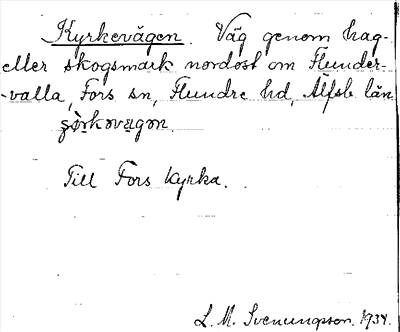 Kyrkevägen. Väg genom hag-
eller skogsmark nordost om Flunder-
-valla, Fors sn, Flundre hd, Älfsb län
Till Fors Kyrka.
L. M. Svenungsson. 1934.